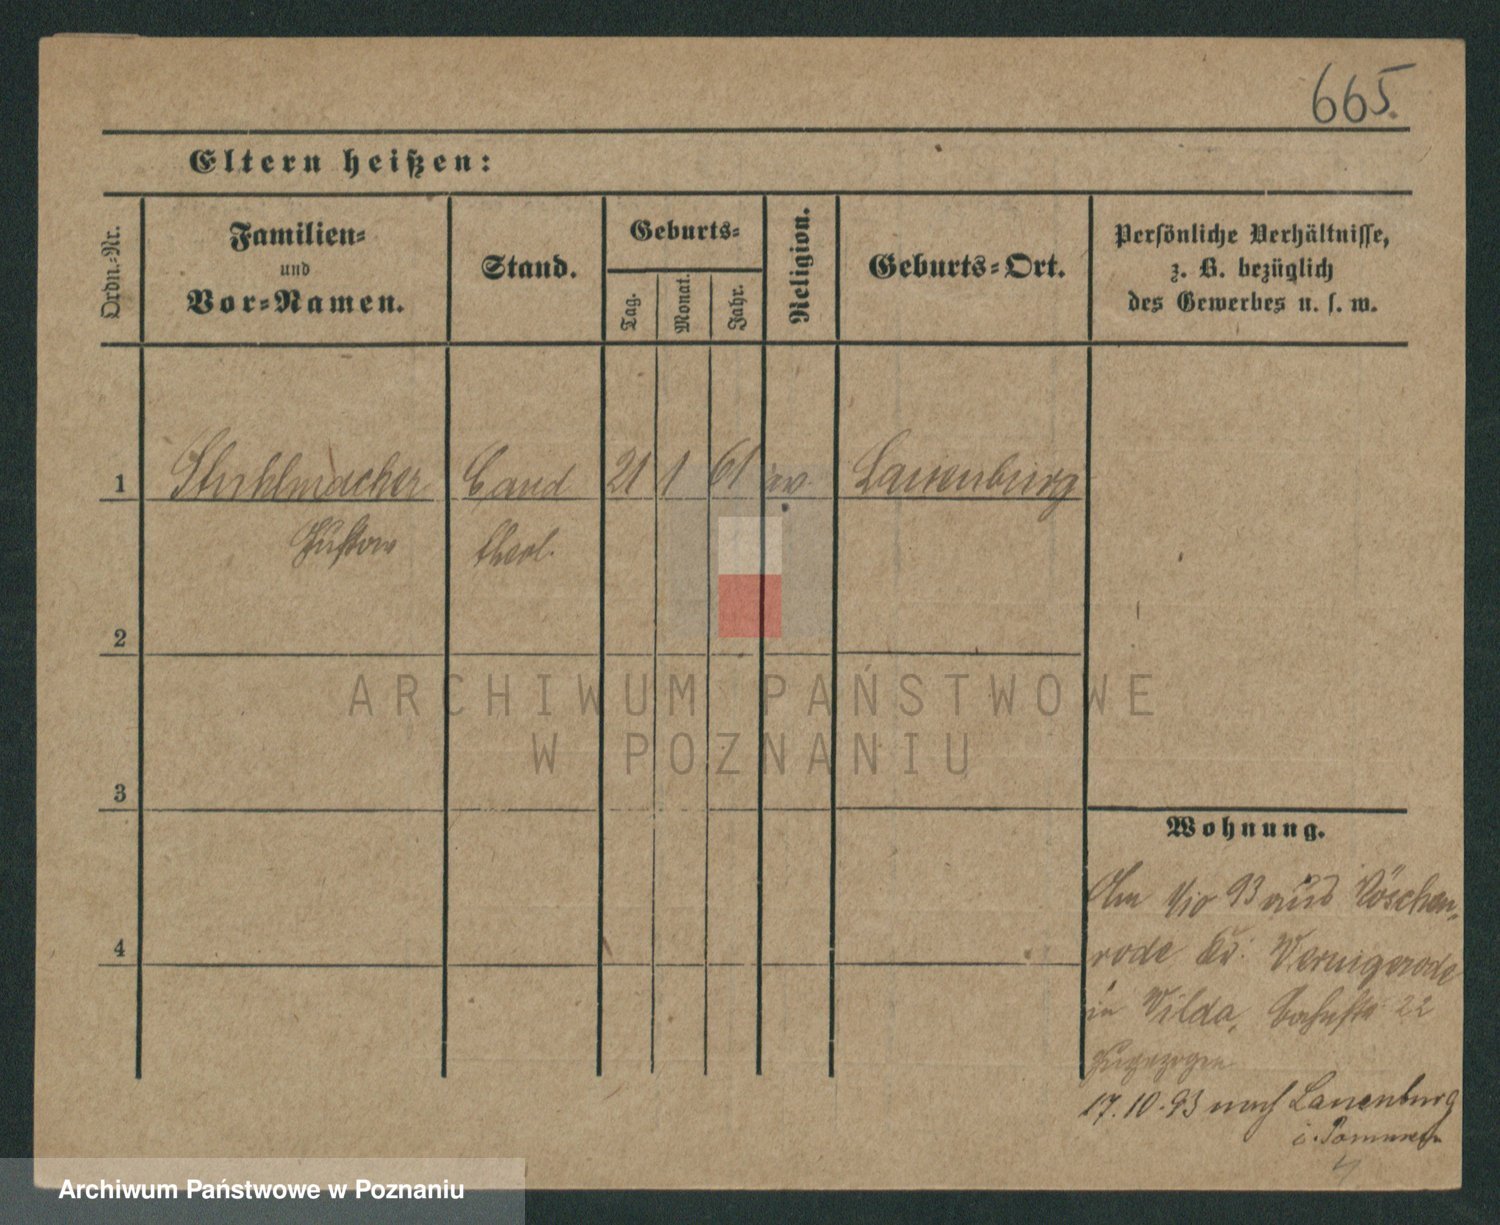 665.
Eltern heißen:
Ordn.-Nr.
Familien-
und
Vor-Namen.
Stand.
Geburts-
Tag.
Monat.
Jahr.
Religion.
Geburts-Ort.
Persönliche Verhältnisse,
z. B. bezüglich
des Gewerbes u. s. w.
1 Stuhlmacher Cand 21 1 61 ev. Lauenburg
Gustav theol.
2
3
4
Wohnung.
Am 1/10 93 aus Nöschen-
rode Kr. Wernigerode
in Wilda, 22
zugezogen
17.10.93 nach Lauenburg
i. Pommern
ARCHIWUM PAŃSTWOWE
W POZNANIU
Archiwum Państwowe w Poznaniu